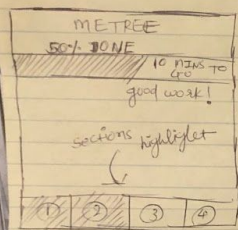 METREE
50% DONE
10 MINS TO
GO
good work!
sections highlight
1 2 3 4